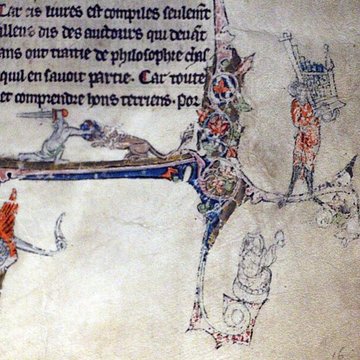 Car cis liures est compiles seulemt
des auctours qui deuāt
ont traitie de philosophie chas
quil en sauoit partie. Car toute
et comprendre hons terriens. Por